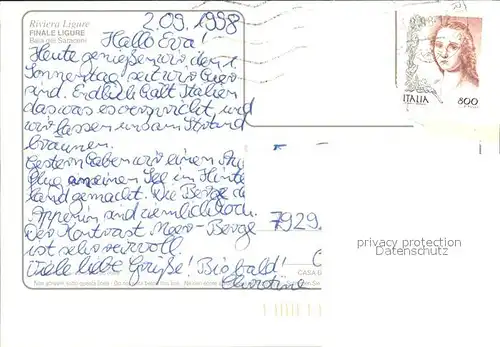 Riviera Ligure
FINALE LIGURE
Baia dei Saraceni
2.09.1998
Hallo Eva!
Heute genießen wir den 1.
Sonnentag seit wir hier
sind. Endlich hält Italien
das was es verspricht und
wir lassen uns am Strand
braunen.
Gestern haben wir einen Au
flug an einen See im Hinte
land gemacht. Die Berge de
Appenin sind ziemlich hoch.
Der Kontrast Meer-Berge
ist sehr reizvoll.
Viele liebe Grüße! Bis bald!
Christine
7929
CASA
ITALIA
800
privacy protection
Datenschutz